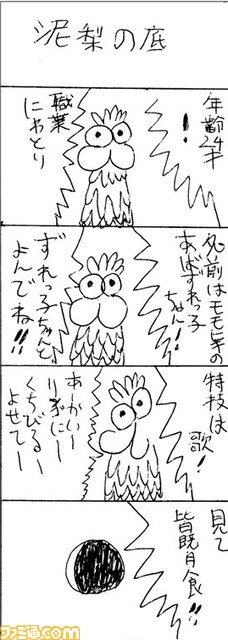 泥梨の底
年齢24才
!
職業
にわとり
名前はモモヒキの
あばずれっ子
ちゃん!
ずれっ子ちゃんと
よんでね!!
特技は
歌!
あーかいー
りんごにー
くちびるー
よせてー
見て
皆既月食!!
ファミ通.com